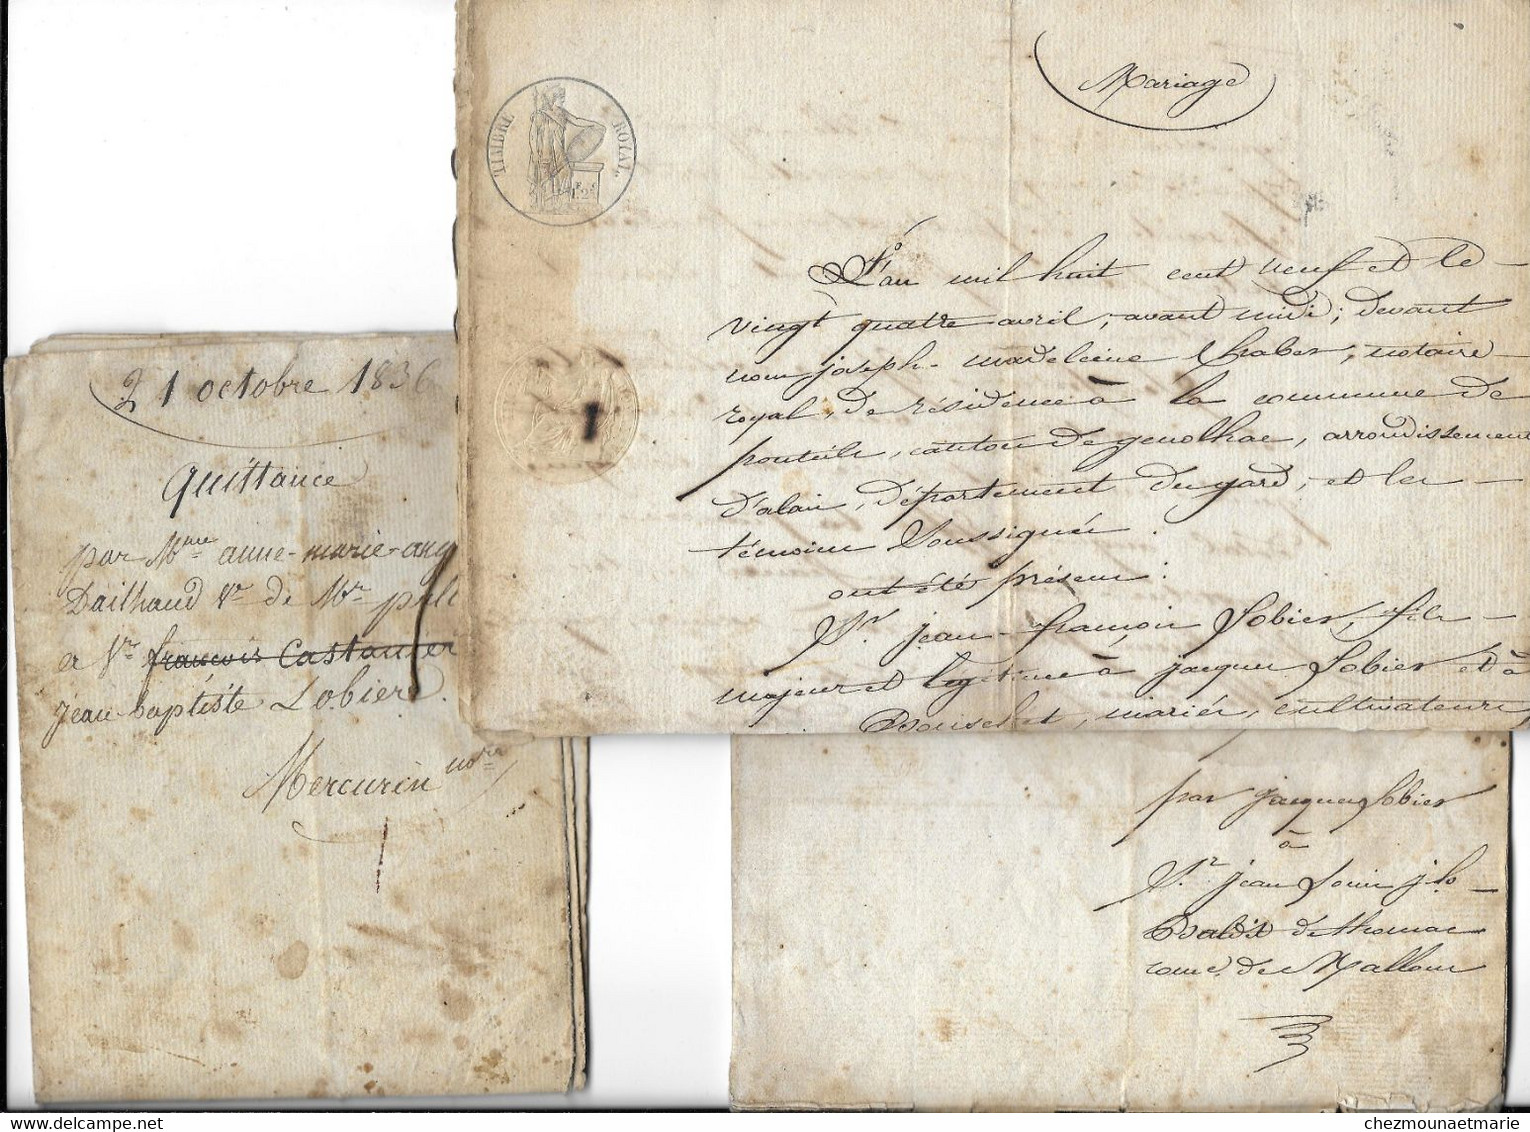 Mariage
TIMBRE ROYAL
L'an mil huit cent neuf et le
vingt quatre avril, avant midi; devant
nous joseph-madeleine Chabert, notaire
royal, de résidence à la commune de
ponteils, canton de genolhac, arrondissement
d'alais, département du gard, et les
témoins Soussignés
ont été présens:
Sr. jean-françois Lobier, fils
majeur et légitime à jacques Lobier et à
mariés, cultivateurs,
21 octobre 1836
quittance
par Mme anne-marie-ang
Dailhaud Ve de Mr
a Sr françois Castanier
jean-baptiste Lobiere.
Mercurin nore
par jacques Lobier
à
Sr. jean Louis
de thomas
come. de Mallons
chezmounaetmarie.delcampe.net